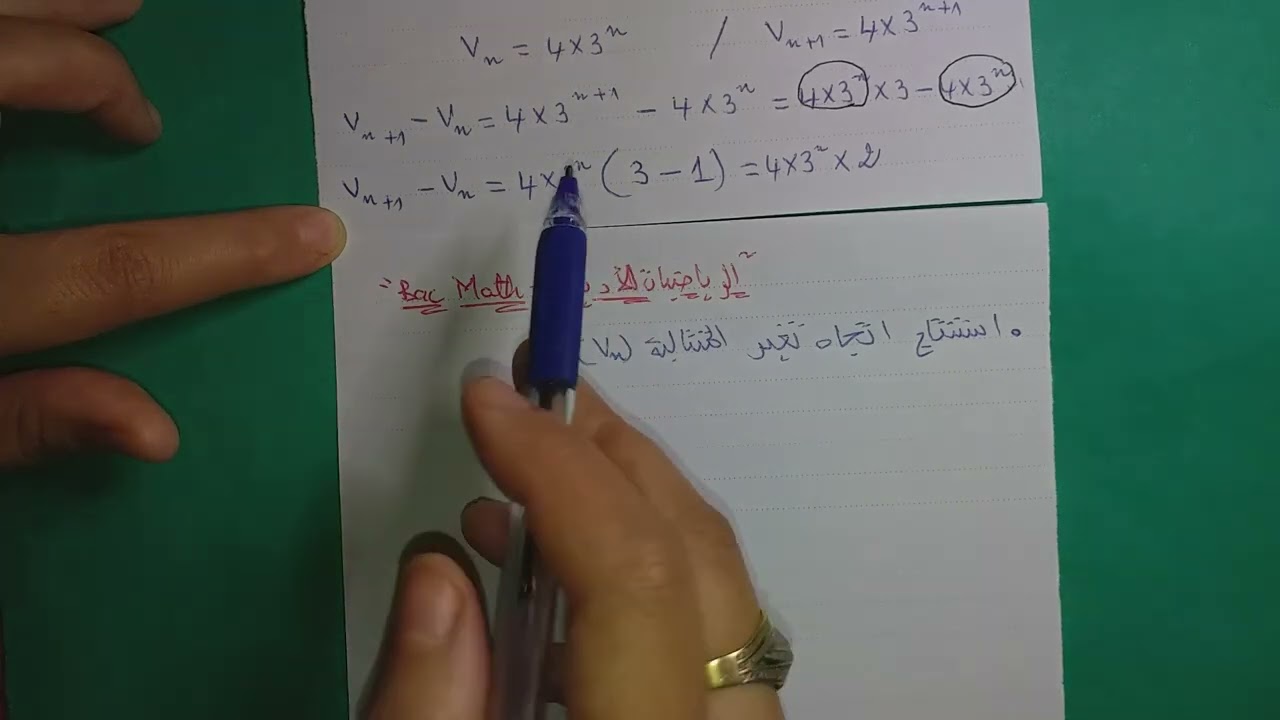 Vₙ = 4×3ⁿ / Vₙ₊₁ = 4×3ⁿ⁺¹
Vₙ₊₁ − Vₙ = 4×3ⁿ⁺¹ − 4×3ⁿ = 4×3ⁿ × 3 − 4×3ⁿ
Vₙ₊₁ − Vₙ = 4× ⁿ (3 − 1) = 4×3ⁿ × 2
"Bac Math الرياضيات"
استنتاج اتجاه تغير المتتالية (Vₙ)